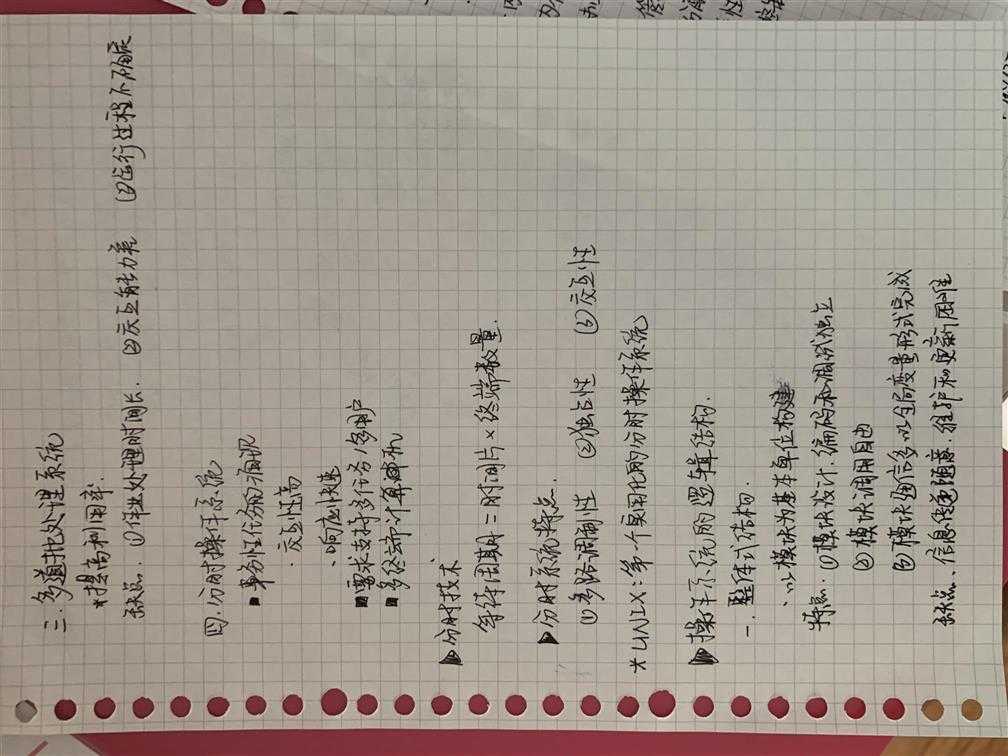 二. 多道批处理系统
*提高利用率.
缺点. ①作业处理时间长. ②交互能力差 ③运行过程不确定
四. 分时操作系统
■ 事务性任务的涌现
· 交互性高
· 响应快速
■ 需求支持多任务/多用户
■ 多终端计算机
▶ 分时技术
等待周期=时间片×终端数量.
▶ 分时系统特点.
①多路调制性 ②独占性 ③交互性
*UNIX: 第一个实用化的分时操作系统
▶ 操作系统的逻辑结构.
一. 整体式结构.
· 以模块为基本单位构建
特点: ①模块设计、编码和调试独立
②模块调用自由
③模块通信多以全局变量形式完成
缺点、信息传递随意. 维护和更新困难